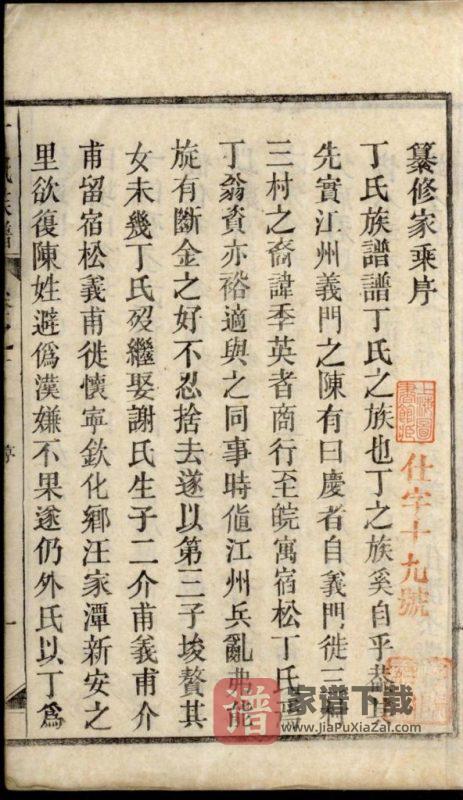 纂修家乘序
丁氏族譜譜丁氏之族也丁之族奚自乎恭
先實江州義門之陳有曰慶者自義門徙三
三村之裔諱季英者商行至皖寓宿松丁氏
丁翁賚亦裕適與之同事時値江州兵亂弗能
旋有斷金之好不忍捨去遂以第三子埈贅其
女未幾丁氏歿繼娶謝氏生子二介甫義甫介
甫留宿松義甫徙懷寧欽化鄉汪家潭新安之
里欲復陳姓避僞漢嫌不果遂仍外氏以丁爲
上海圖書館藏
仕字十九號
譜
家谱下载
www.JiaPuXiaZai.com